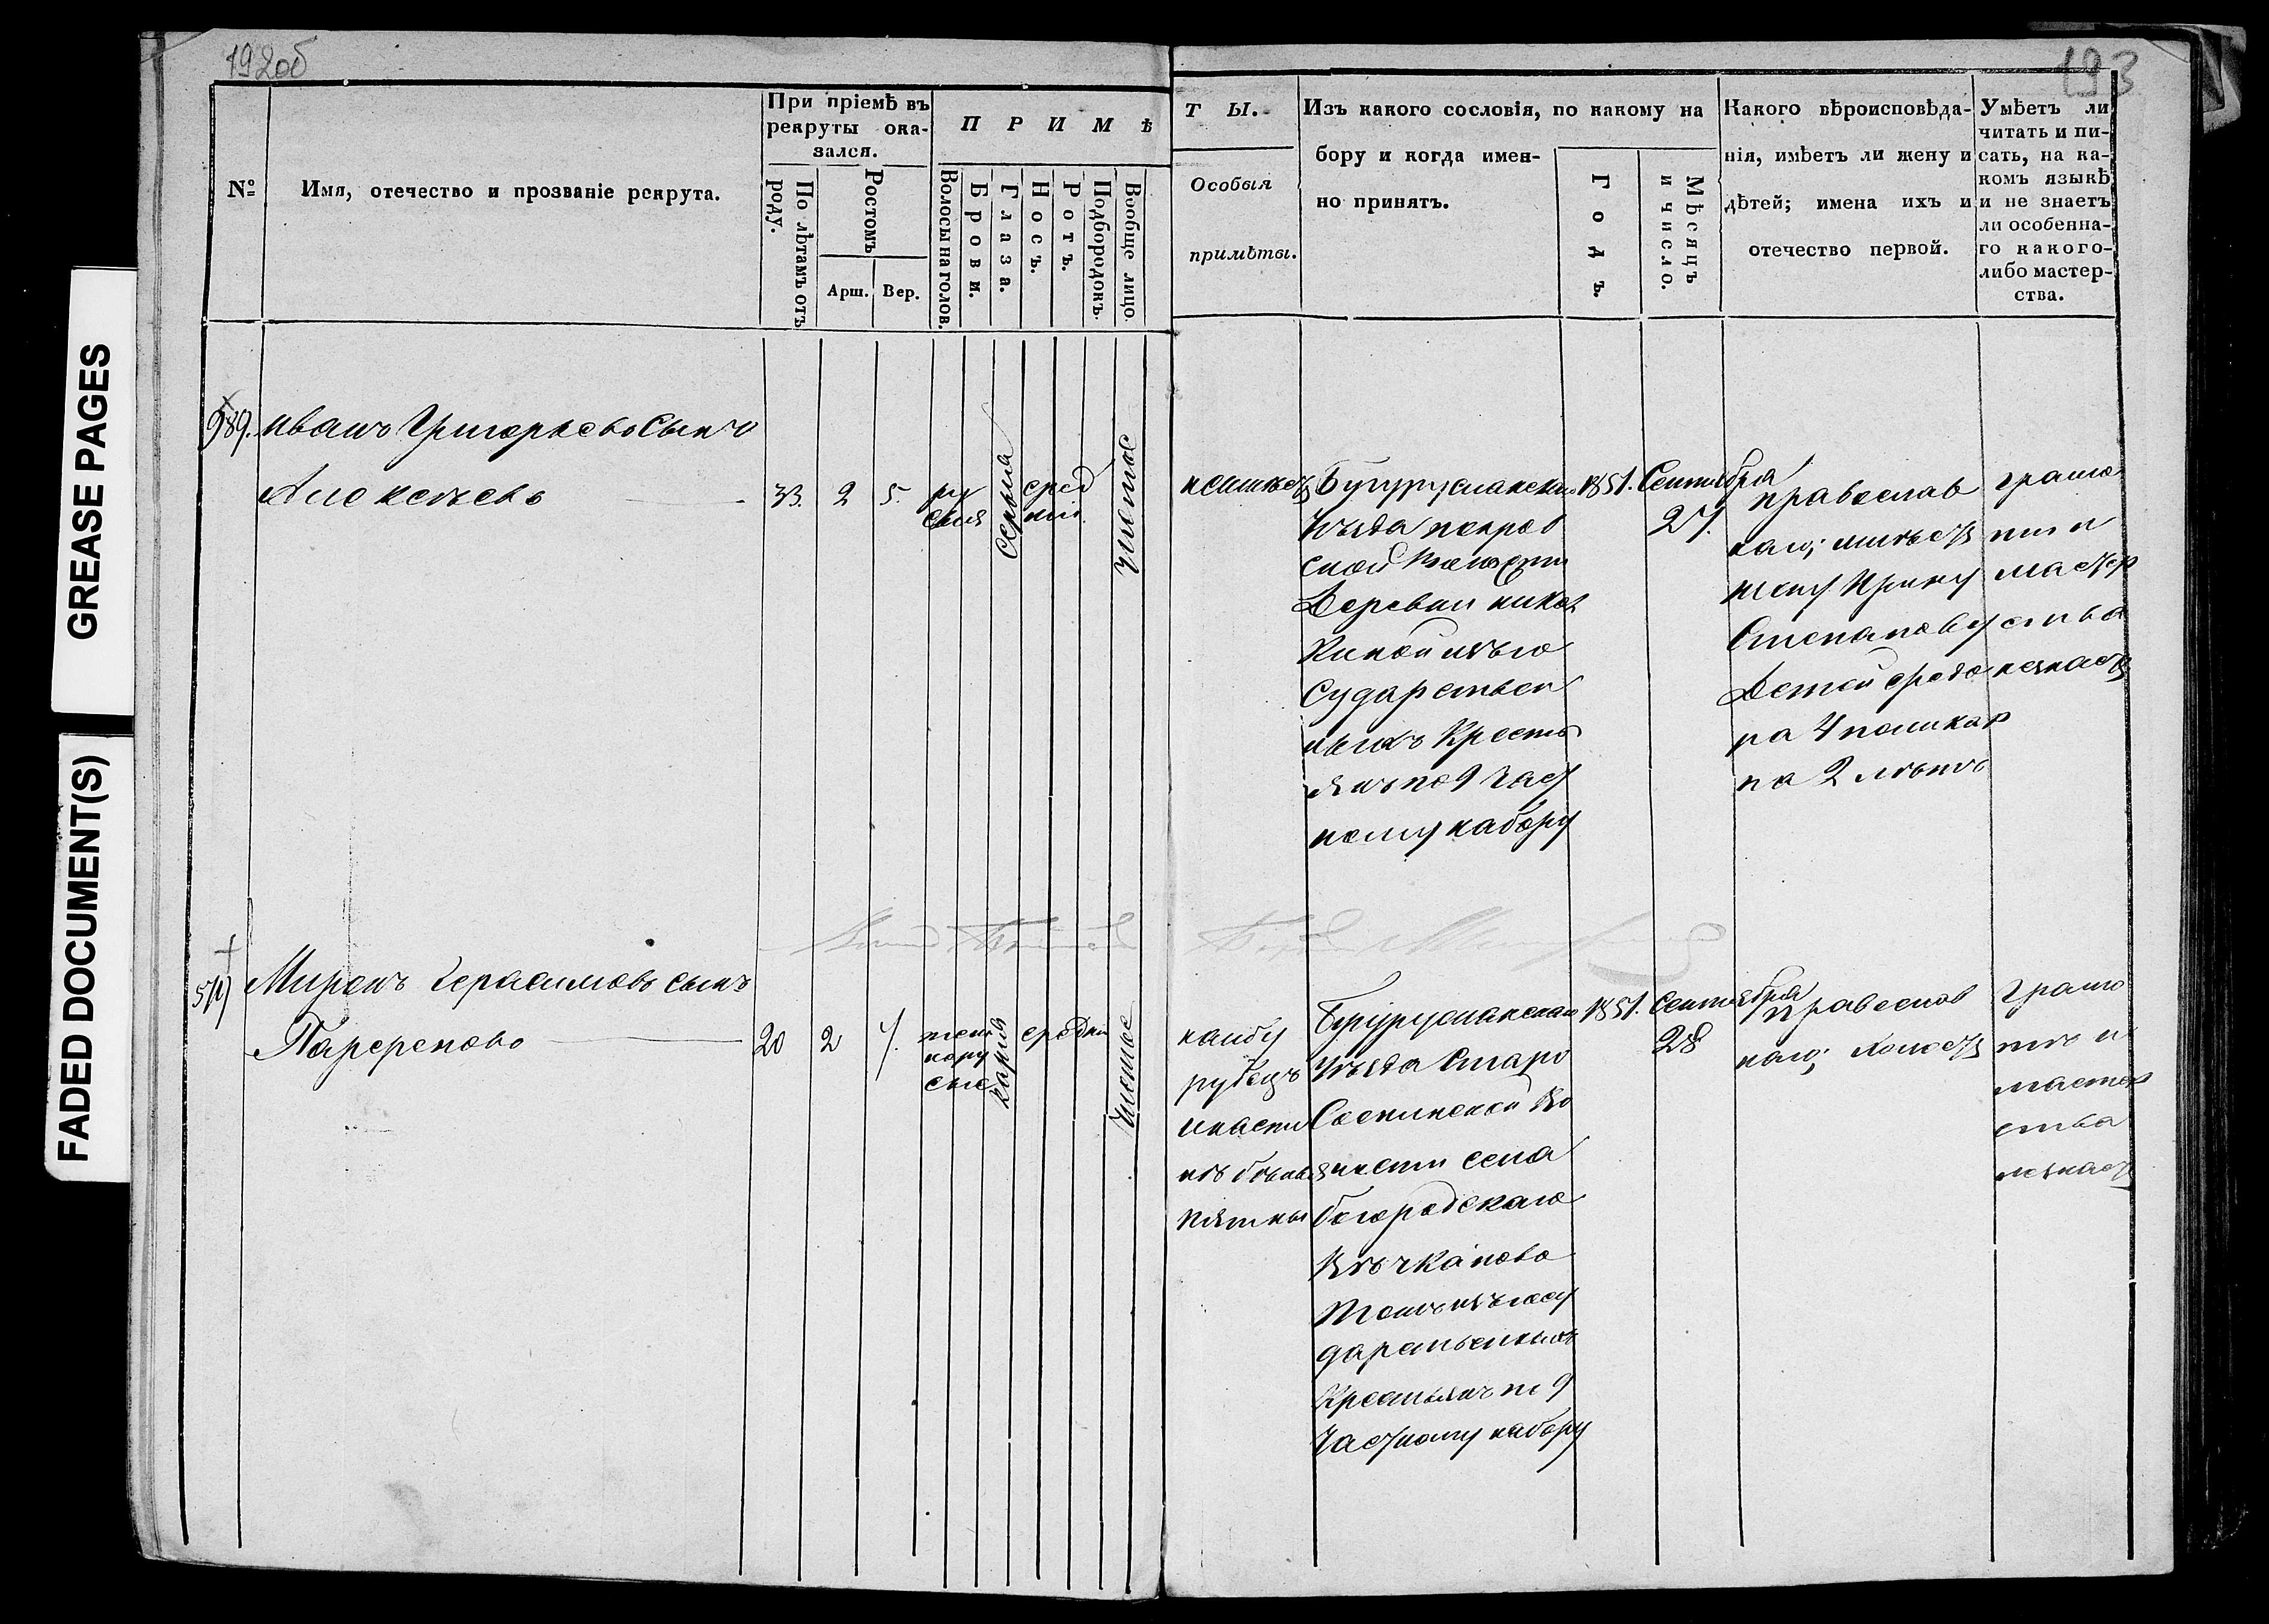 192об
193
GREASE PAGES
FADED DOCUMENT(S)
№
Имя, отечество и прозваніе рекрута.
При пріемѣ въ
рекруты ока-
зался.
По лѣтамъ отъ
роду.
Ростомъ
Арш.
Вер.
ПРИМѢ
Волосы на голов.
Брови.
Глаза.
Носъ.
Ротъ.
Подбородокъ.
Вообще лицо.
ТЫ.
Особыя
примѣты.
Изъ какого сословія, по какому на
бору и когда имен-
но принятъ.
Годъ.
Мѣсяцъ
и число.
Какого вѣроисповѣда-
нія, имѣетъ ли жену и
дѣтей; имена ихъ и
отечество первой.
Умѣетъ ли
читать и пи-
сать, на ка-
комъ языкѣ
и не знаетъ
ли особенна-
го какого-
либо мастер-
ства.
989.
Иванъ Григорьевъ Сынъ
Алексѣевъ
33. 2 5.
ру
сыя
Серыя
сред
ній
чистое
неимѣетъ
Бугурусланскаго
Уѣзда покров
ской волости
Деревни
Киной изъ го
сударствен
ныхъ Кресть
янъ по 9 Част
ному набору
1851.
Сентября
27.
православ
наго; имѣетъ
жену Ирину
Степанову
Детей Федо
ра 4 поликар
па 2 летъ
грамо
ти и
мастер
ства
незнаетъ
Миронъ Герасимовъ сынъ
20 2
темн
нору
сые
Карія
средни
Чистое
на лбу
рубецъ
и на спи
нѣ бѣлыя
пятны
Бугурусланскаго
Уѣзда Старо
Соснинской Во
лости села
богородскаго
тожъ изъ госу
дарственныхъ
Крестьянъ по 9
Частному набору
1851.
Сентября
28
православ
наго; холостъ
грамо
тѣ и
мастер
ства
незнаетъ